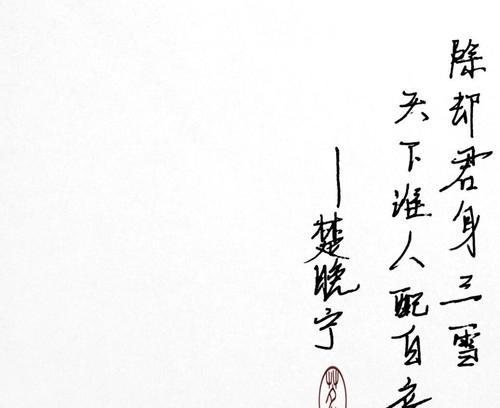 除却君身三雪
天下谁人配白
——楚晚宁